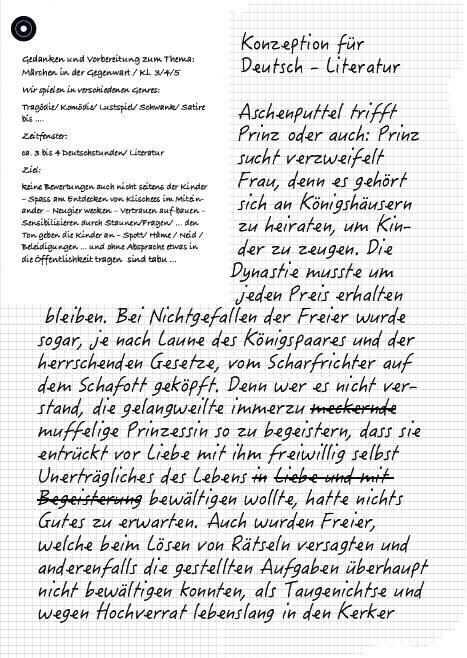 Gedanken und Vorbereitung zum Thema:
Märchen in der Gegenwart / Kl. 3/4/5
Wir spielen in verschiedenen Genres:
Tragödie/ Komödie/ Lustspiel/ Schwank/ Satire
bis ....
Zeitfenster:
ca. 3 bis 4 Deutschstunden/ Literatur
Ziel:
keine Bewertungen auch nicht seitens der Kinder
– Spass am Entdecken von Klischees im Mitein-
ander – Neugier wecken – Vertrauen auf-bauen –
Sensibilisieren durch Staunen/Fragen/ ... den
Ton geben die Kinder an – Spott/ Häme / Neid /
Beleidigungen ... und ohne Absprache etwas in
die Öffentlichkeit tragen sind tabu ...
Konzeption für
Deutsch – Literatur
Aschenputtel trifft
Prinz oder auch: Prinz
sucht verzweifelt
Frau, denn es gehört
sich an Königshäusern
zu heiraten, um Kin-
der zu zeugen. Die
Dynastie musste um
jeden Preis erhalten
bleiben. Bei Nichtgefallen der Freier wurde
sogar, je nach Laune des Königspaares und der
herrschenden Gesetze, vom Scharfrichter auf
dem Schafott geköpft. Denn wer es nicht ver-
stand, die gelangweilte immerzu meckernde
muffelige Prinzessin so zu begeistern, dass sie
entrückt vor Liebe mit ihm freiwillig selbst
Unerträgliches des Lebens in Liebe und mit
Begeisterung bewältigen wollte, hatte nichts
Gutes zu erwarten. Auch wurden Freier,
welche beim Lösen von Rätseln versagten und
anderenfalls die gestellten Aufgaben überhaupt
nicht bewältigen konnten, als Taugenichtse und
wegen Hochverrat lebenslang in den Kerker